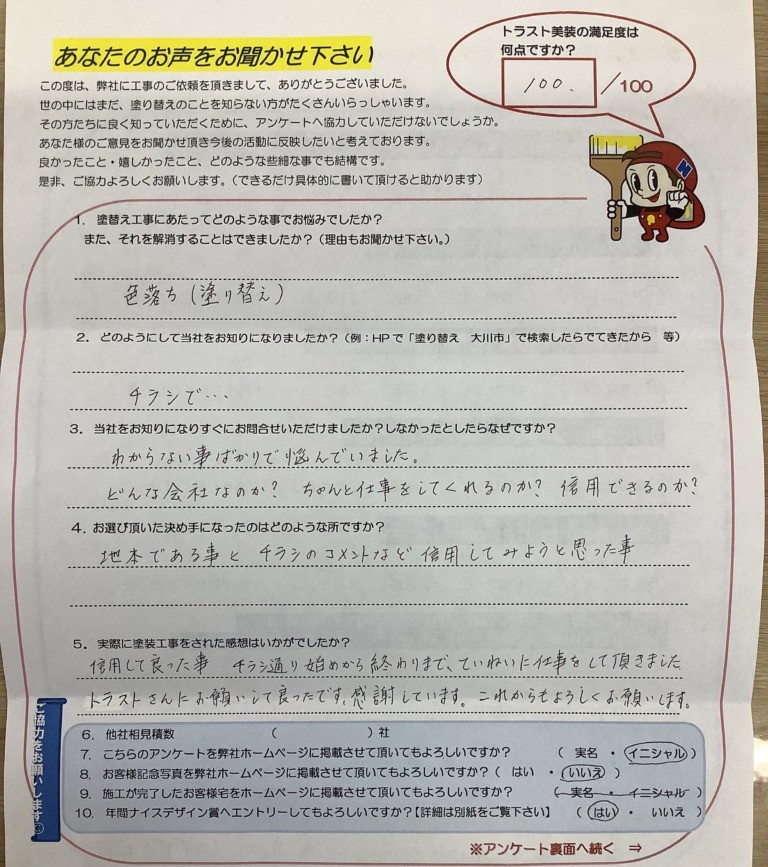 あなたのお声をお聞かせ下さい
トラスト美装の満足度は
何点ですか?
100. /100
この度は、弊社に工事のご依頼を頂きまして、ありがとうございました。
世の中にはまだ、塗り替えのことを知らない方がたくさんいらっしゃいます。
その方たちに良く知っていただくために、アンケートへ協力していただけないでしょうか。
あなた様のご意見をお聞かせ頂き今後の活動に反映したいと考えております。
良かったこと・嬉しかったこと、どのような些細な事でも結構です。
是非、ご協力よろしくお願いします。(できるだけ具体的に書いて頂けると助かります)
N
1. 塗替え工事にあたってどのような事でお悩みでしたか?
また、それを解消することはできましたか?(理由もお聞かせ下さい。)
色落ち(塗り替え)
2. どのようにして当社をお知りになりましたか?(例:HPで「塗り替え 大川市」で検索したらでてきたから 等)
チラシで…
3. 当社をお知りになりすぐにお問合せいただけましたか?しなかったとしたらなぜですか?
わからない事ばかりで悩んでいました。
どんな会社なのか? ちゃんと仕事をしてくれるのか? 信用できるのか?
4. お選び頂いた決め手になったのはどのような所ですか?
地本である事と チラシのコメントなど信用してみようと思った事
5. 実際に塗装工事をされた感想はいかがでしたか?
信用して良った事 チラシ通り始めから終わりまで、ていねいに仕事をして頂きました
トラストさんにお願いして良ったです。感謝しています。これからもよろしくお願いします。
ご協力をお願いします
6. 他社相見積数 ( )社
7. こちらのアンケートを弊社ホームページに掲載させて頂いてもよろしいですか? ( 実名 ・ イニシャル )
8. お客様記念写真を弊社ホームページに掲載させて頂いてもよろしいですか?( はい ・ いいえ )
9. 施工が完了したお客様宅をホームページに掲載させて頂いてもよろしいですか? ( 実名 ・ イニシャル )
10. 年間ナイスデザイン賞へエントリーしてもよろしいですか?【詳細は別紙をご覧下さい】 ( はい ・ いいえ )
※アンケート裏面へ続く ⇒